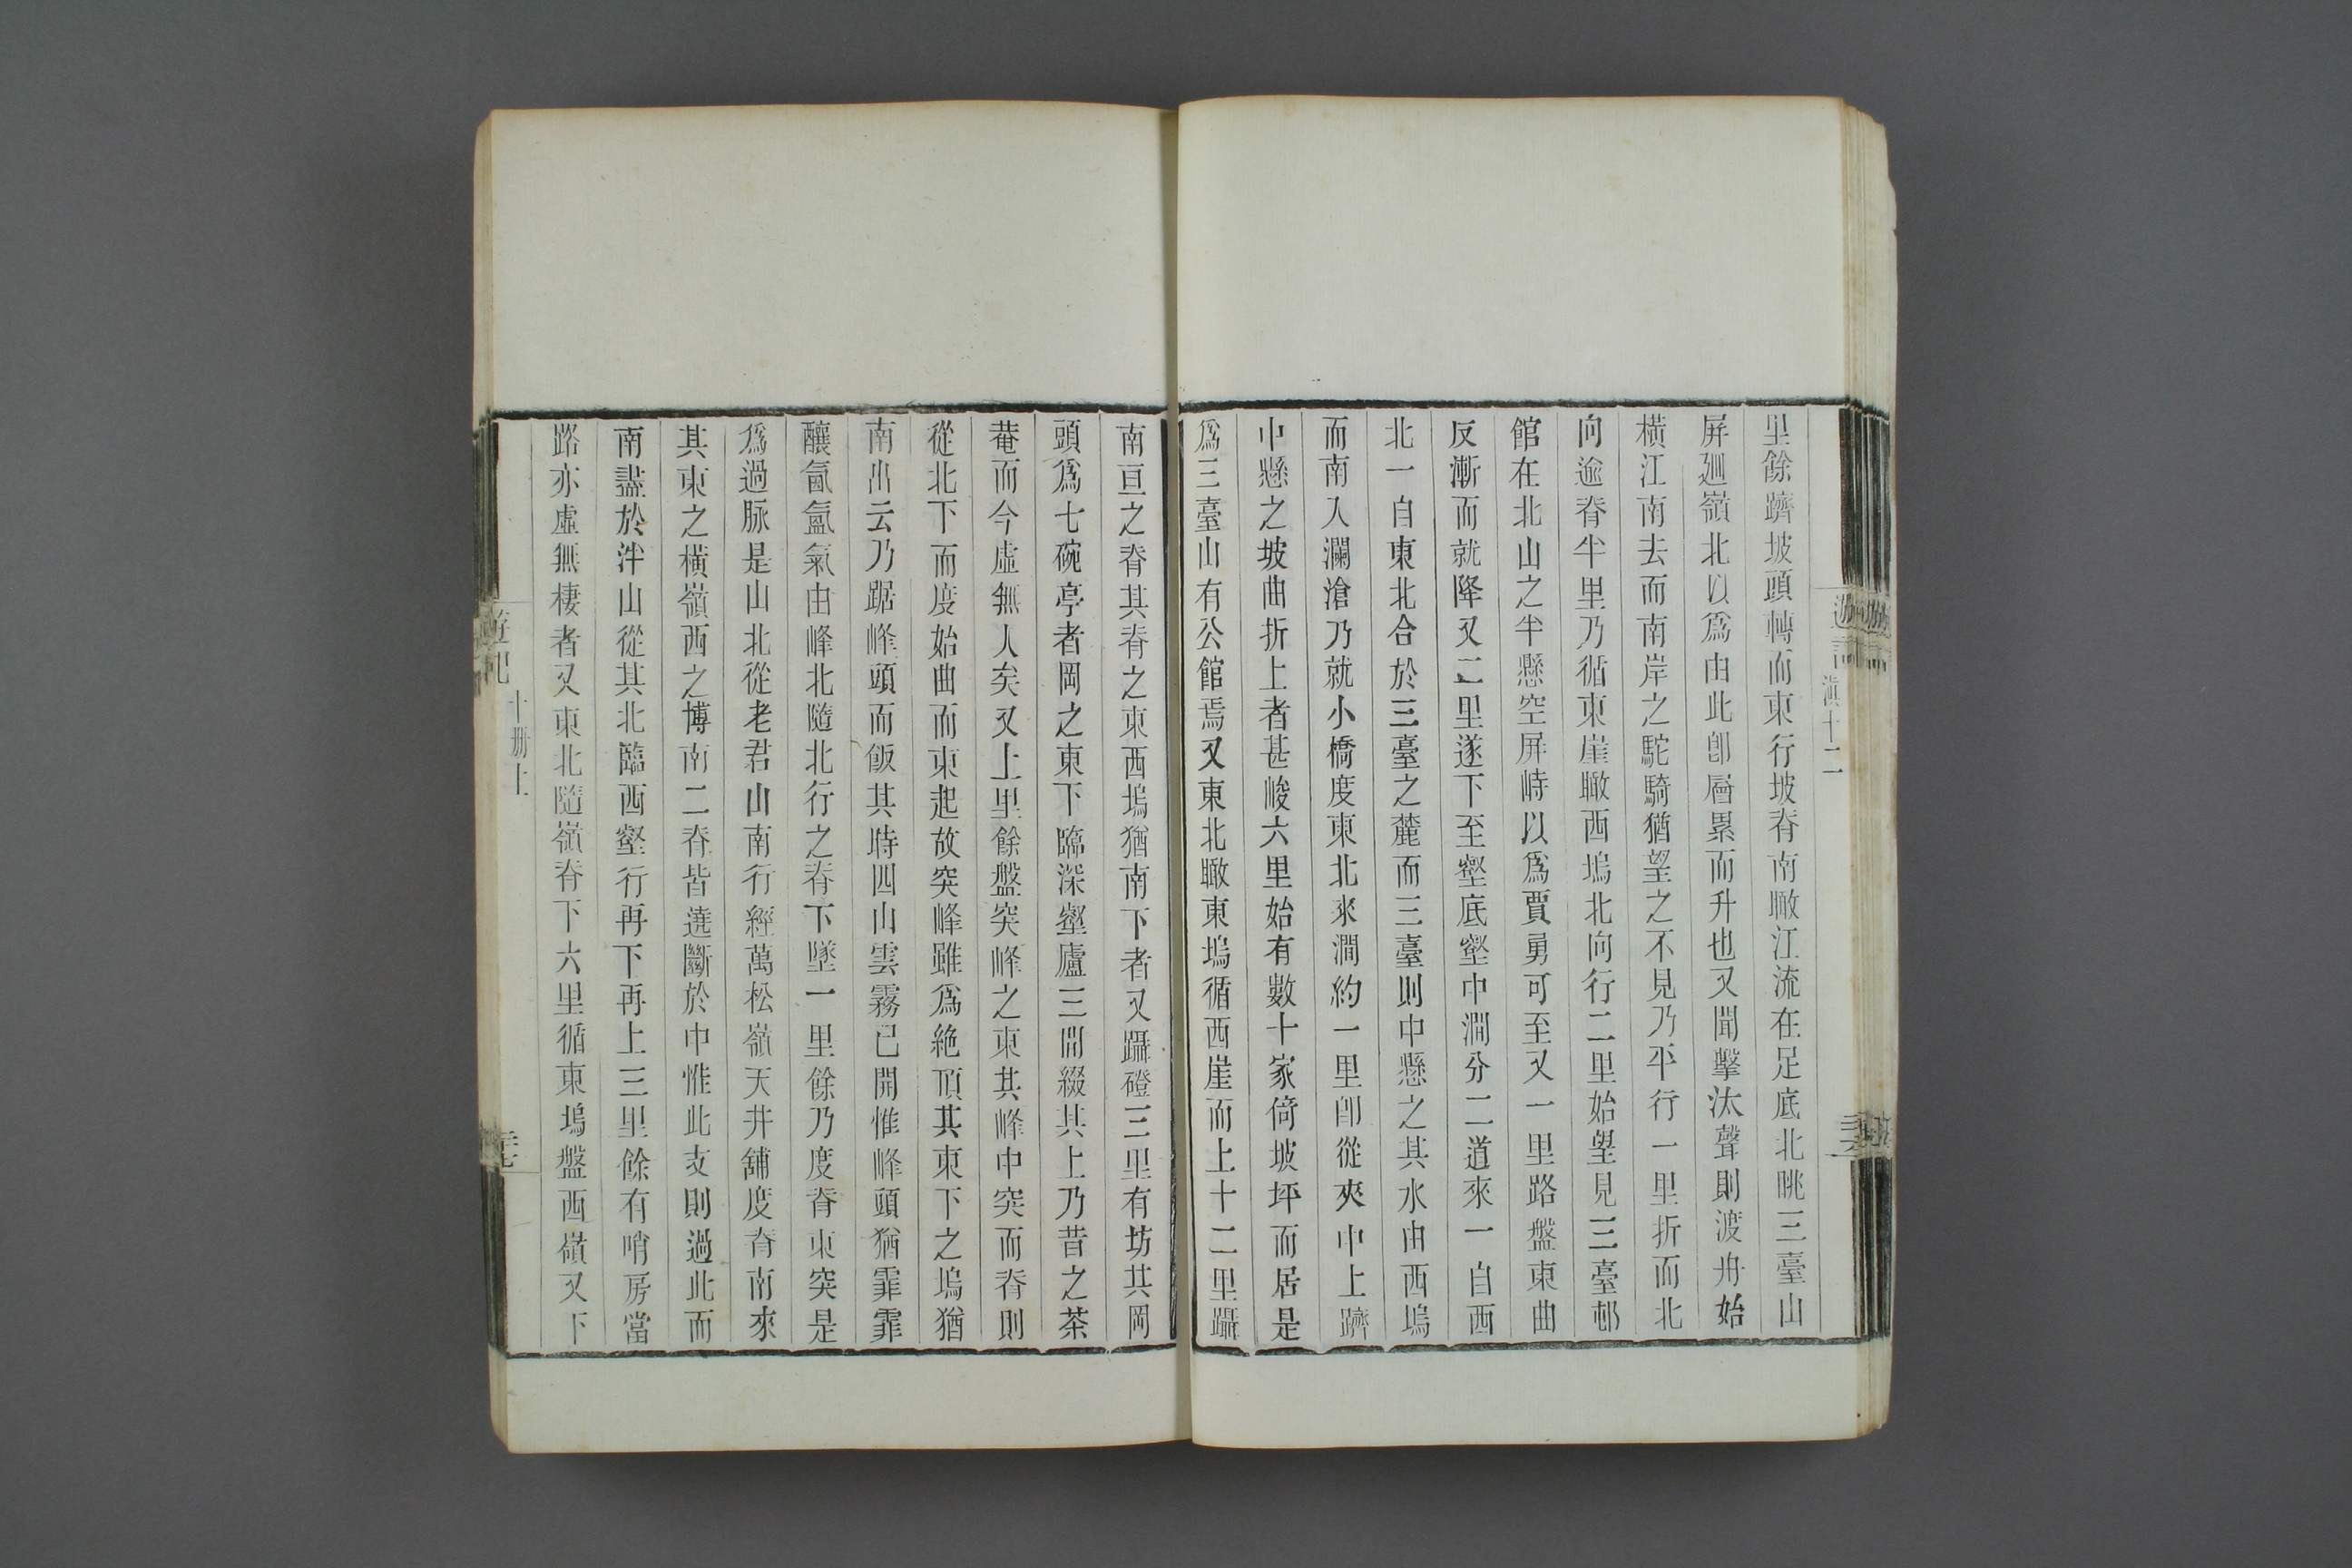 滇十二
里餘躋坡頭轉而東行坡脊南瞰江流在足底北眺三臺山
屏廻嶺北以爲由此卽層累而升也又聞擊汰聲則渡舟始
橫江南去而南岸之駝騎猶望之不見乃平行一里折而北
向逾脊半里乃循東崖瞰西塢北向行二里始望見三臺邨
館在北山之半懸空屏峙以爲賈勇可至又一里路盤東曲
反漸而就降又二里遂下至壑底壑中澗分二道來一自西
北一自東北合於三臺之麓而三臺則中懸之其水由西塢
而南入瀾滄乃就小橋度東北來澗約一里卽從夾中上躋
中懸之坡曲折上者甚峻六里始有數十家倚坡坪而居是
爲三臺山有公館焉又東北瞰東塢循西崖而上十二里躡
南亘之脊其脊之東西塢猶南下者又躡磴三里有坊其岡
頭爲七碗亭者岡之東下臨深壑廬三間綴其上乃昔之茶
菴而今虛無人矣又上里餘盤突峰之東其峰中突而脊則
從北下而度始曲而東起故突峰雖爲絶頂其東下之塢猶
南出云乃踞峰頭而飯其時四山雲霧已開惟峰頭猶霏霏
釀氤氳氣由峰北隨北行之脊下墜一里餘乃度脊東突是
爲過脉是山北從老君山南行經萬松嶺天井舖度脊南來
其東之橫嶺西之博南二脊皆遶斷於中惟此支則過此而
南盡於泮山從其北臨西壑行再下再上三里餘有哨房當
路亦虛無棲者又東北隨嶺脊下六里循東塢盤西嶺又下
遊記
十册上